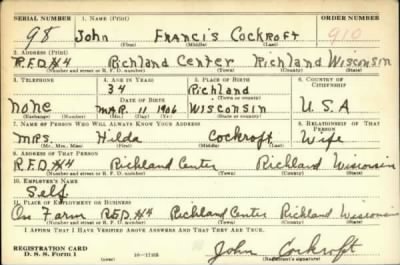 SERIAL NUMBER 1. NAME (Print) ORDER NUMBER
98 John Francis Cockroft 910
(First) (Middle) (Last)
2. ADDRESS (Print)
R.F.D.#4 Richland Center Richland Wisconsin
(Number and street or R. F. D. number) (Town) (County) (State)
3. TELEPHONE 4. AGE IN YEARS 5. PLACE OF BIRTH 6. COUNTRY OF CITIZENSHIP
34 Richland
DATE OF BIRTH (Town or county)
None Mar. 11 1906 Wisconsin U.S.A
(Exchange) (Number) (Mo.) (Day) (Yr.) (State or country)
7. NAME OF PERSON WHO WILL ALWAYS KNOW YOUR ADDRESS 8. RELATIONSHIP OF THAT PERSON
Mrs. Hilda Cockroft Wife
(Mr., Mrs., Miss) (First) (Middle) (Last)
9. ADDRESS OF THAT PERSON
R.F.D.#4 Richland Center Richland Wisconsin
(Number and street or R. F. D. number) (Town) (County) (State)
10. EMPLOYER'S NAME
Self
11. PLACE OF EMPLOYMENT OR BUSINESS
On Farm R.F.D.#4 Richland Center Richland Wisconsin
(Number and street or R. F. D. number) (Town) (County) (State)
I AFFIRM THAT I HAVE VERIFIED ABOVE ANSWERS AND THAT THEY ARE TRUE.
REGISTRATION CARD John Cockroft
D. S. S. Form 1 16—17105 (Registrant's signature)